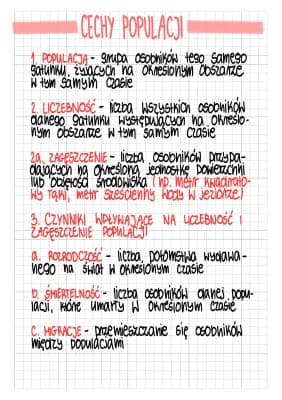 CECHY POPULACJI
1. POPULACJA - grupa osobników tego samego
gatunku, żyjących na określonym obszarze
w tym samym czasie
2. LICZEBNOŚĆ - liczba wszystkich osobników
danego gatunku występujących na określo-
nym obszarze w tym samym czasie
2a. ZAGĘSZCZENIE - liczba osobników przypa-
dających na określoną jednostkę powierzchni
lub objętości środowiska (np. metr kwadrato-
wy łąki, metr sześcienny wody w jeziorze)
3. CZYNNIKI WPŁYWAJĄCE NA LICZEBNOŚĆ I
ZAGĘSZCZENIE POPULACJI
a. ROZRODCZOŚĆ - liczba potomstwa wydawa-
nego na świat w określonym czasie
b. ŚMIERTELNOŚĆ - liczba osobników danej popu-
lacji, które umarły w określonym czasie
c. MIGRACJE - przemieszczanie się osobników
między populacjami